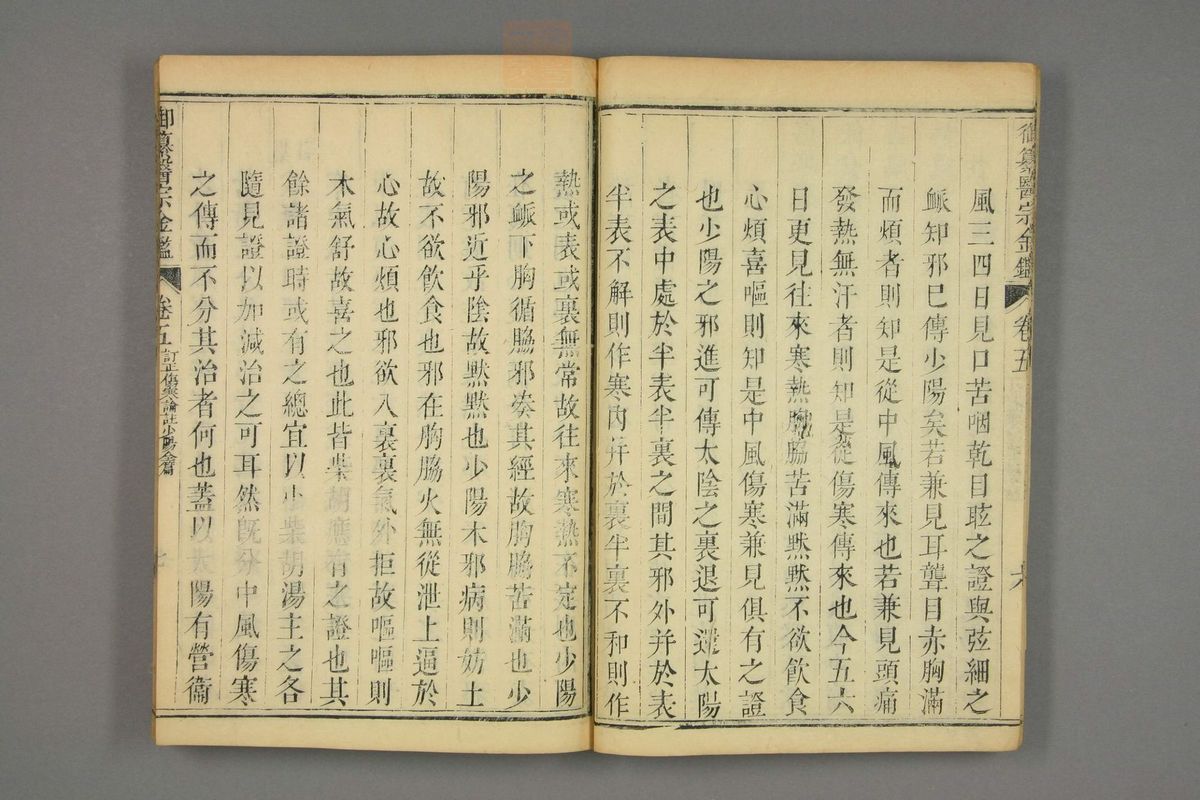 御纂醫宗金鑑 卷五 六
風三四日見口苦咽乾目眩之證與弦細之
脈知邪已傳少陽矣若兼見耳聾目赤胸滿
而煩者則知是從中風傳來也若兼見頭痛
發熱無汗者則知是從傷寒傳來也今五六
日更見往來寒熱胸脇苦滿默默不欲飲食
心煩喜嘔則知是中風傷寒兼見俱有之證
也少陽之邪進可傳太陰之裏退可還太陽
之表中處於半表半裏之間其邪外并於表
半表不解則作寒內并於裏半裏不和則作
熱或表或裏無常故往來寒熱不定也少陽
之脈下胸循脇邪湊其經故胸脇苦滿也少
陽邪近乎陰故默默也少陽木邪病則妨土
故不欲飲食也邪在胸脇火無從泄上逼於
心故心煩也邪欲入裏裏氣外拒故嘔嘔則
木氣舒故喜之也此皆柴胡應有之證也其
餘諸證時或有之總宜以小柴胡湯主之各
隨見證以加減治之可耳然既分中風傷寒
之傳而不分其治者何也蓋以太陽有營衞
御纂醫宗金鑑 卷五 訂正傷寒論註少陽全篇 七